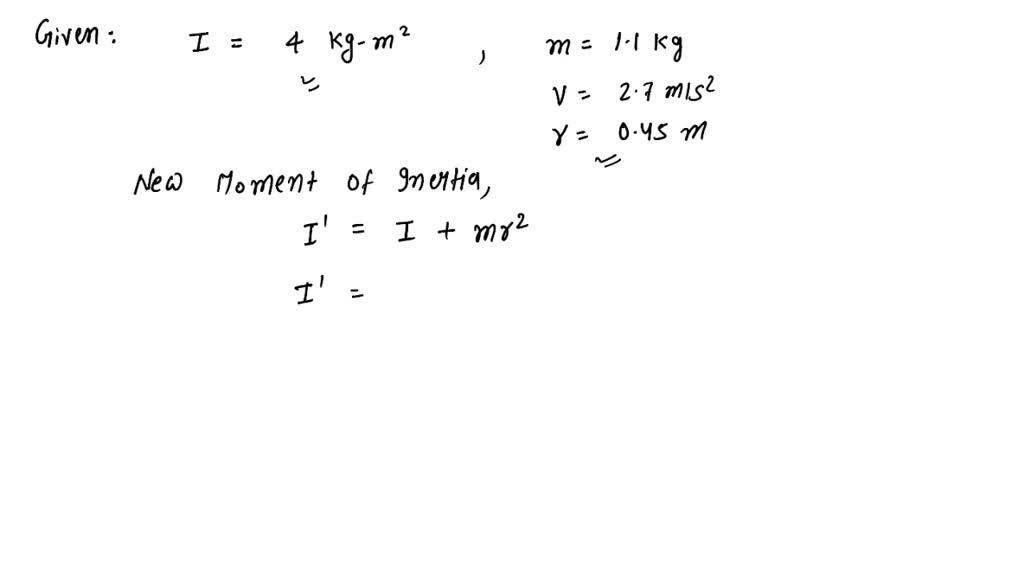 Given: I = 4 kg-m² , m = 1.1 kg
V = 2.7 m/s²
r = 0.45 m
New Moment of Inertia,
I' = I + mr²
I' =